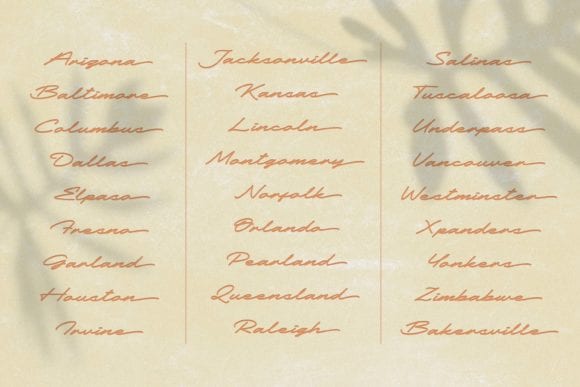 Arizona
Baltimore
Columbus
Dallas
Elpaso
Fresno
Garland
Houston
Irvine
Jacksonville
Kansas
Lincoln
Montgomery
Norfolk
Orlando
Pearland
Queensland
Raleigh
Salinas
Tuscaloosa
Underpass
Vancouver
Westminster
Xpanders
Yonkers
Zimbabwe
Bakersville